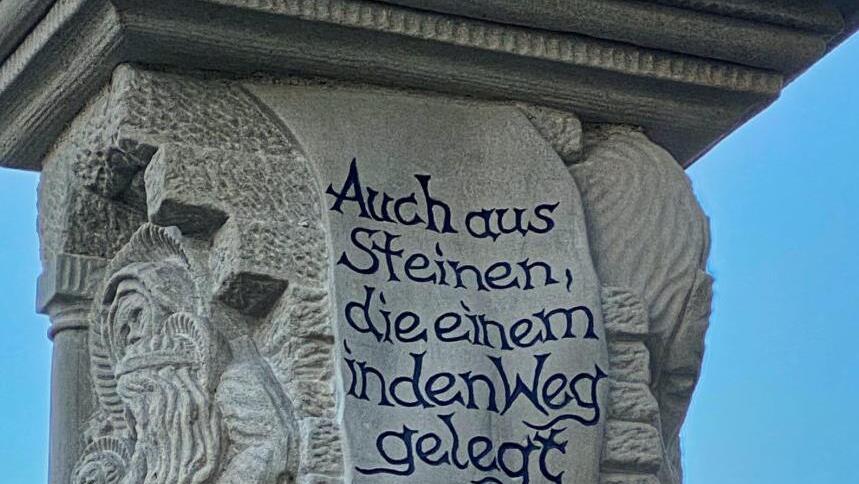 Auch aus
Steinen,
die einem
in den Weg
gelegt